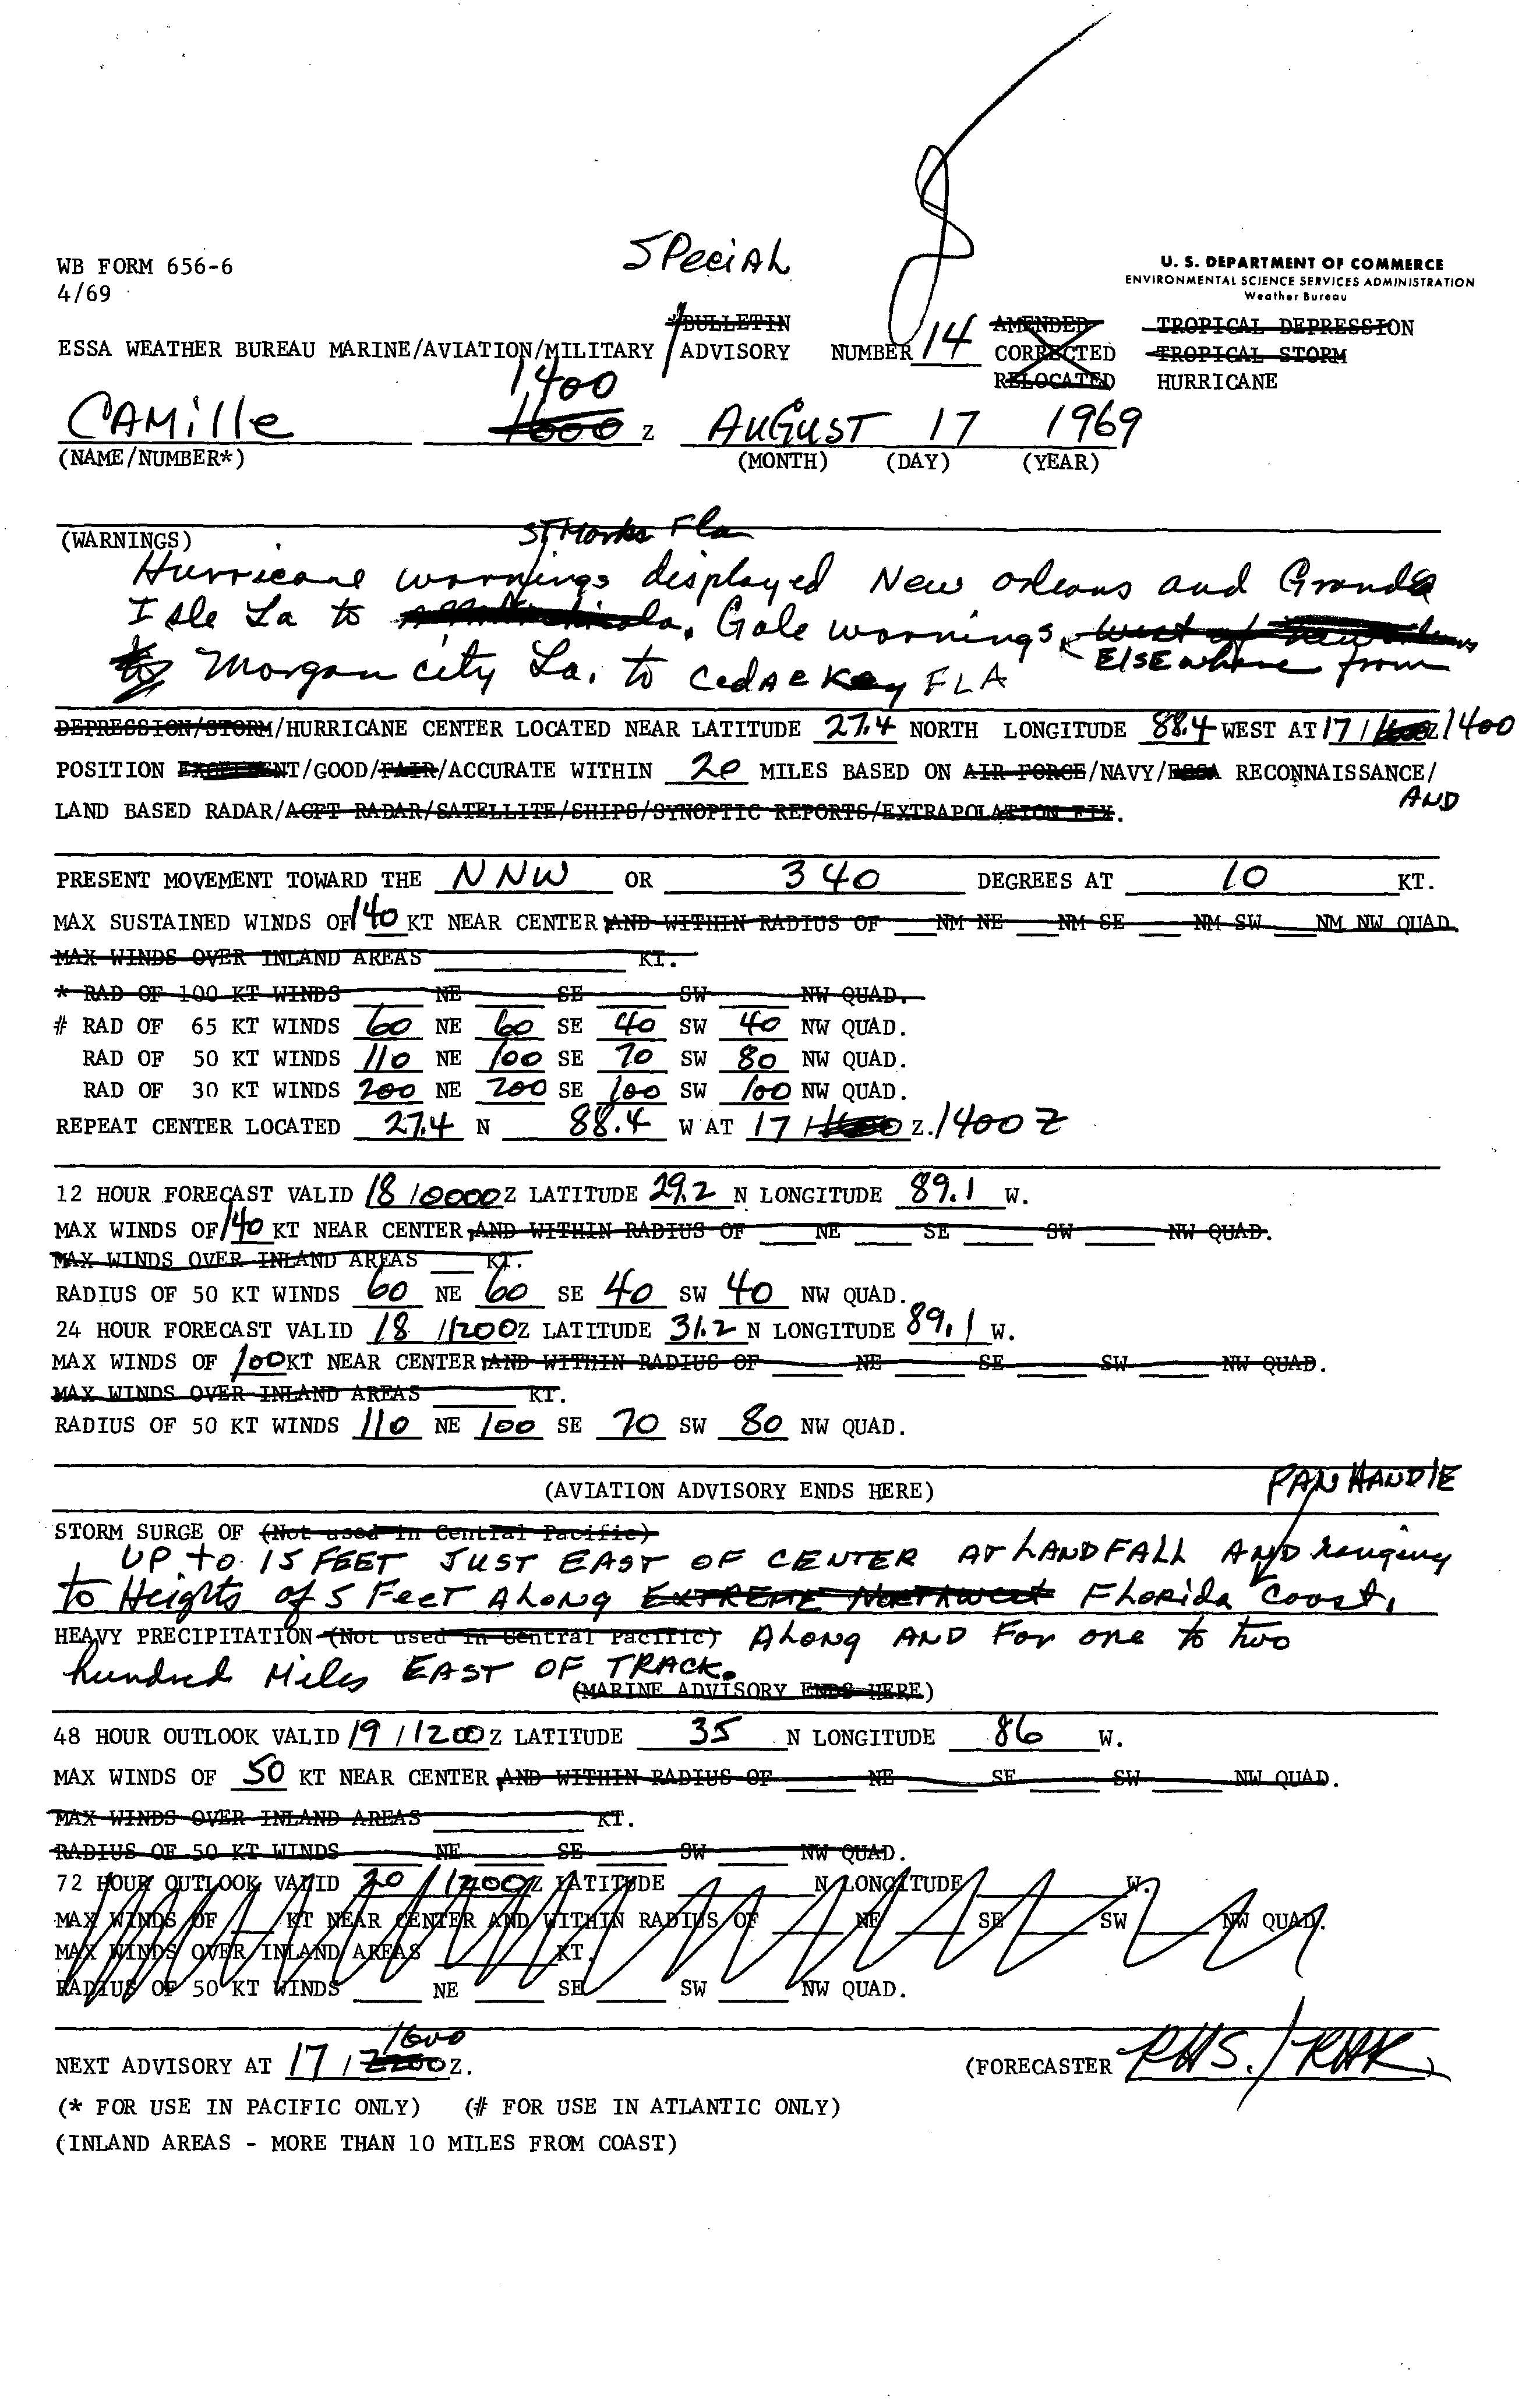 SPeciAL
WB FORM 656-6
4/69
U. S. DEPARTMENT OF COMMERCE
ENVIRONMENTAL SCIENCE SERVICES ADMINISTRATION
Weather Bureau
*BULLETIN AMENDED TROPICAL DEPRESSION
ESSA WEATHER BUREAU MARINE/AVIATION/MILITARY ADVISORY NUMBER 14 CORRECTED TROPICAL STORM
RELOCATED HURRICANE
1400
CAMille 1600 Z AUGUST 17 1969
(NAME/NUMBER*) (MONTH) (DAY) (YEAR)
(WARNINGS) St Marks Fla
Hurricane warnings displayed New orleans and Grande
Isle La to Gale warnings west of
Morgan city La. to CedAR Key FLA ElSEwhere from
DEPRESSION/STORM/HURRICANE CENTER LOCATED NEAR LATITUDE 27.4 NORTH LONGITUDE 88.4 WEST AT 17 / Z 1400
POSITION EXCELLENT/GOOD/FAIR/ACCURATE WITHIN 20 MILES BASED ON AIR FORCE/NAVY/ESSA RECONNAISSANCE/
AND
LAND BASED RADAR/ACFT RADAR/SATELLITE/SHIPS/SYNOPTIC REPORTS/EXTRAPOLATION FIX.
PRESENT MOVEMENT TOWARD THE NNW OR 340 DEGREES AT 10 KT.
MAX SUSTAINED WINDS OF 140 KT NEAR CENTER AND WITHIN RADIUS OF ___NM NE ___NM SE ___NM SW ___NM NW QUAD.
MAX WINDS OVER INLAND AREAS ___ KT.
* RAD OF 100 KT WINDS ___ NE ___ SE ___ SW ___ NW QUAD.
# RAD OF 65 KT WINDS 60 NE 60 SE 40 SW 40 NW QUAD.
RAD OF 50 KT WINDS 110 NE 100 SE 70 SW 80 NW QUAD.
RAD OF 30 KT WINDS 200 NE 200 SE 100 SW 100 NW QUAD.
REPEAT CENTER LOCATED 27.4 N 88.4 W AT 17 / Z. 1400 Z
12 HOUR FORECAST VALID 18 /0000Z LATITUDE 29.2 N LONGITUDE 89.1 W.
MAX WINDS OF 140 KT NEAR CENTER AND WITHIN RADIUS OF ___NE ___ SE ___ SW ___ NW QUAD.
MAX WINDS OVER INLAND AREAS ___ KT.
RADIUS OF 50 KT WINDS 60 NE 60 SE 40 SW 40 NW QUAD.
24 HOUR FORECAST VALID 18 /1200Z LATITUDE 31.2 N LONGITUDE 89.1 W.
MAX WINDS OF 100KT NEAR CENTER AND WITHIN RADIUS OF ___ NE ___ SE ___ SW ___ NW QUAD.
MAX WINDS OVER INLAND AREAS ___ KT.
RADIUS OF 50 KT WINDS 110 NE 100 SE 70 SW 80 NW QUAD.
(AVIATION ADVISORY ENDS HERE) PANHANDlE
STORM SURGE OF (Not used in Central Pacific)
UP to 15 FEET JUST EAST OF CENTER AT LANDFALL AND ranging
to Heights of 5 FeeT ALONG EXTREME NORTHWEST FLoRida Coast.
HEAVY PRECIPITATION (Not used in Central Pacific) ALONG AND For one to two
hundred Miles EAST OF TRACK.
(MARINE ADVISORY ENDS HERE)
48 HOUR OUTLOOK VALID 19 /1200Z LATITUDE 35 N LONGITUDE 86 W.
MAX WINDS OF 50 KT NEAR CENTER AND WITHIN RADIUS OF ___ NE ___ SE ___ SW ___ NW QUAD.
MAX WINDS OVER INLAND AREAS ___ KT.
RADIUS OF 50 KT WINDS ___ NE ___ SE ___ SW ___ NW QUAD.
72 HOUR OUTLOOK VALID 20 /1200Z LATITUDE ___ N LONGITUDE ___ W.
MAX WINDS OF ___ KT NEAR CENTER AND WITHIN RADIUS OF ___ NE ___ SE ___ SW ___ NW QUAD.
MAX WINDS OVER INLAND AREAS ___ KT.
RADIUS OF 50 KT WINDS ___ NE ___ SE ___ SW ___ NW QUAD.
1600
NEXT ADVISORY AT 17 / 2200Z. (FORECASTER RHS./RHK)
(* FOR USE IN PACIFIC ONLY) (# FOR USE IN ATLANTIC ONLY)
(INLAND AREAS - MORE THAN 10 MILES FROM COAST)